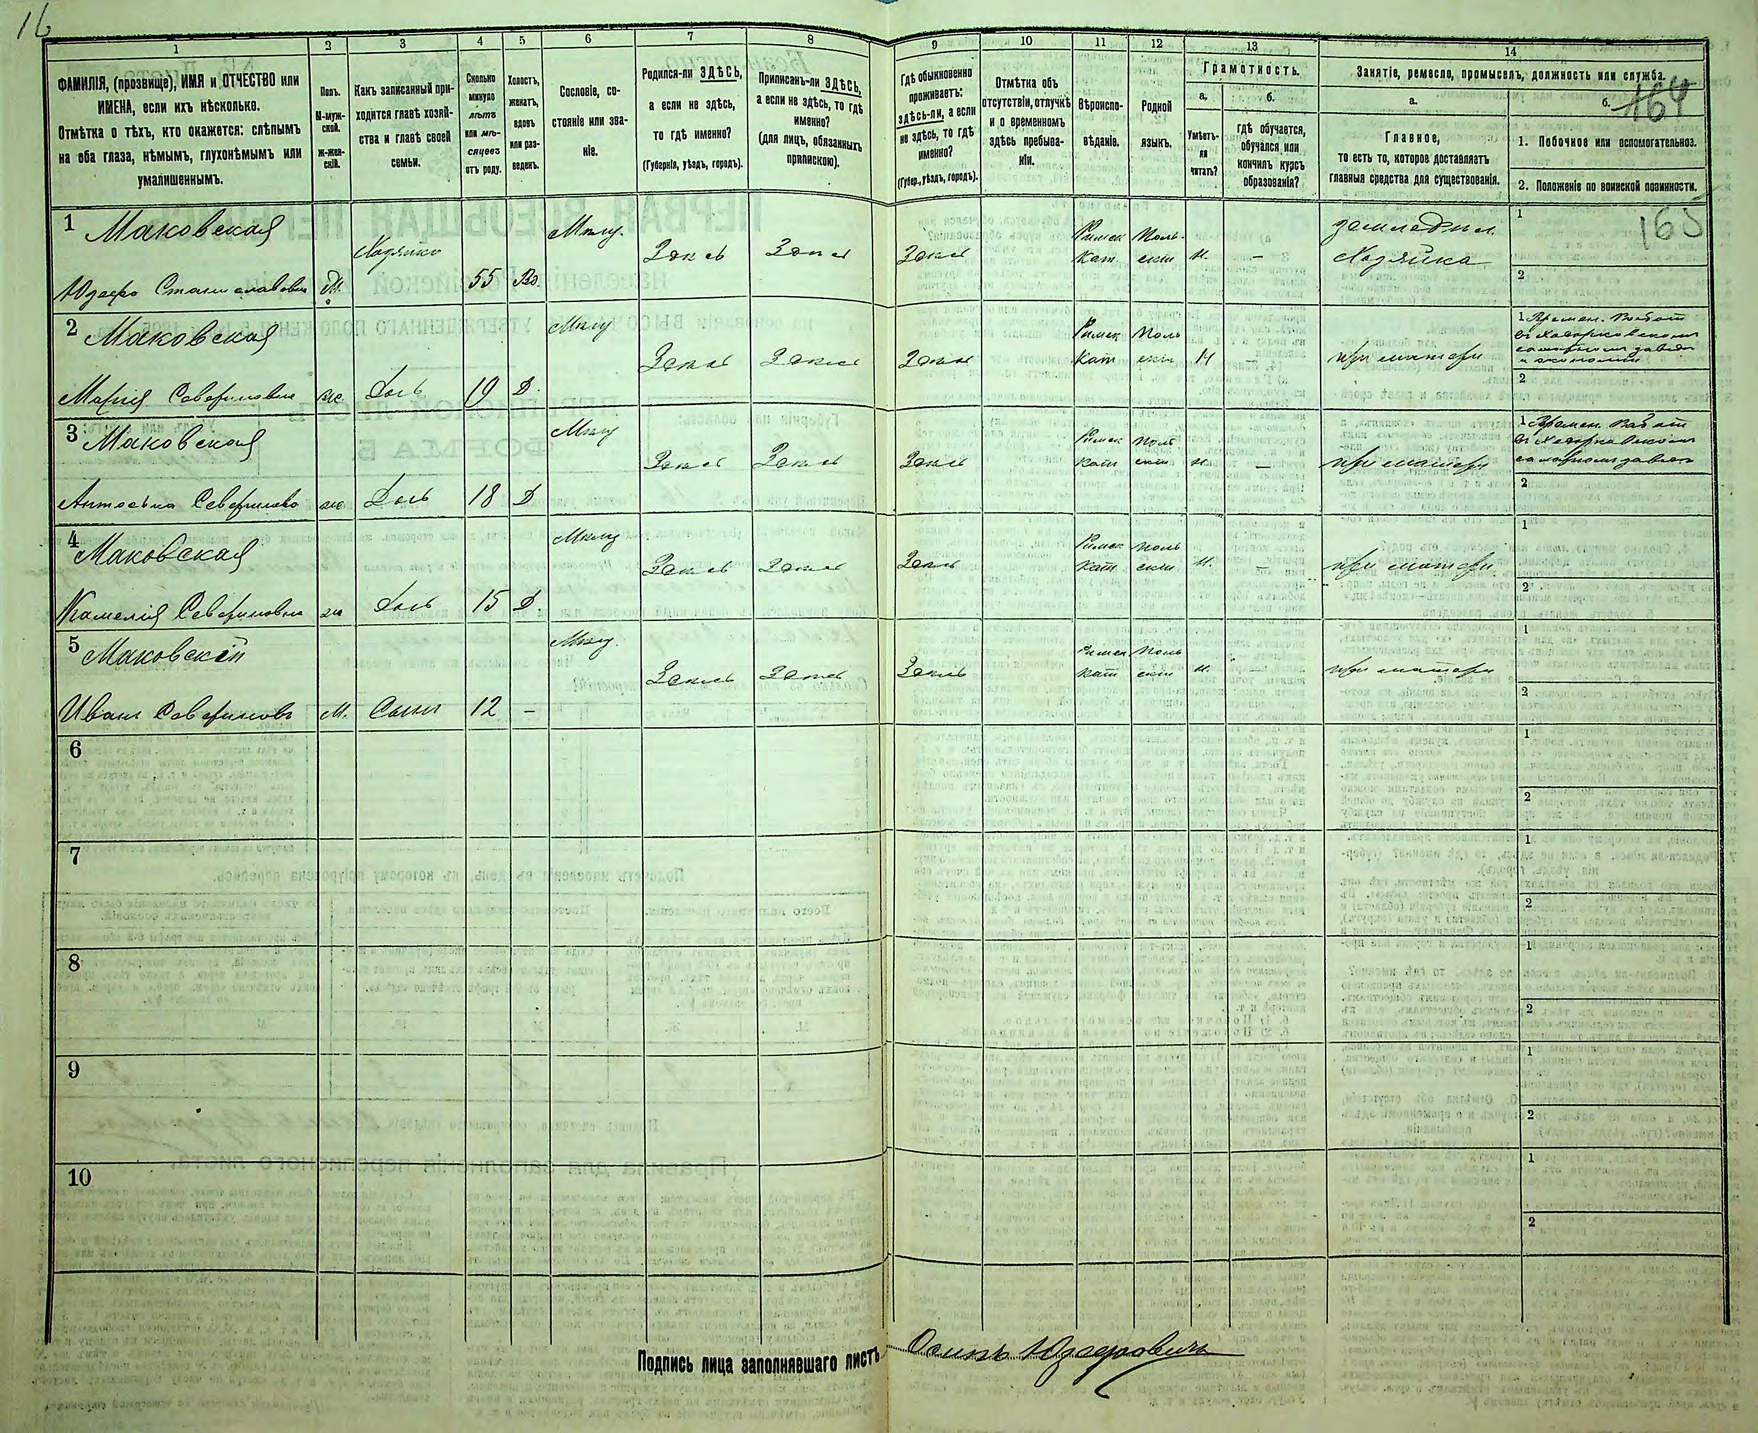 16
1 2 3 4 5 6 7 8 9 10 11 12 13 14
ФАМИЛІЯ, (прозвище), ИМЯ и ОТЧЕСТВО или
ИМЕНА, если ихъ нѣсколько.
Отмѣтка о тѣхъ, кто окажется: слѣпымъ
на оба глаза, нѣмымъ, глухонѣмымъ или
умалишеннымъ.
Полъ.
М-муж-
ской.
Ж-жен-
скій.
Какъ записанный при-
ходится главѣ хозяй-
ства и главѣ своей
семьи.
Сколько
минуло
лѣтъ
или мѣ-
сяцевъ
отъ роду.
Холостъ,
женатъ,
вдовъ
или раз-
веденъ.
Сословіе, со-
стояніе или зва-
ніе.
Родился-ли ЗДѢСЬ,
а если не здѣсь,
то гдѣ именно?
(Губернія, уѣздъ, городъ).
Приписанъ-ли ЗДѢСЬ,
а если не здѣсь, то гдѣ
именно?
(для лицъ, обязанныхъ
припискою).
Гдѣ обыкновенно
проживаетъ:
здѣсь-ли, а если
не здѣсь, то гдѣ
именно?
(Губер., уѣздъ, городъ).
Отмѣтка объ
отсутствіи, отлучкѣ
и о временномъ
здѣсь пребыва-
ніи.
Вѣроиспо-
вѣданіе.
Родной
языкъ.
Грамотность.
а.
Умѣетъ-
ли
читать?
б.
гдѣ обучается,
обучался или
кончилъ курсъ
образованія?
Занятіе, ремесло, промыселъ, должность или служба.
а.
Главное,
то есть то, которое доставляетъ
главныя средства для существованія.
б.
164
1. Побочное или вспомогательное.
2. Положеніе по воинской повинности.
165
1 Маковская
Юзефа Станиславовна
Хозяйка 55 Вд.
Здѣсь Здѣсь Здѣсь
Римск Поль-
Кат. ски н. –
Хозяйка
1
2
2 Маковская
Марія Севериновна
же. Дочь 19 Д
Здѣсь Здѣсь Здѣсь
Римск Поль
Кат ски н –
при матери
1 Времен. Работ
2
3 Маковская
Севериново
же. Дочь 18 Д
Здѣсь Здѣсь Здѣсь
Римск Поль
кат ски н. –
при матери
1 Времен. Работ
2
4 Маковская
Камелія Севериновна
Дочь 15 Д
Здѣсь Здѣсь Здѣсь
Римск Поль
кат ски н. –
при матери
1
2
5 Маковскій
Иванъ Севериновъ
М. Сынъ 12 –
Здѣсь Здѣсь Здѣсь
Римск Поль
кат ски н.
при матери
1
2
6
1
2
7
1
2
8
1
2
9
1
2
10
1
2
Подпись лица заполнявшаго листъ Осипъ Юзефовичъ